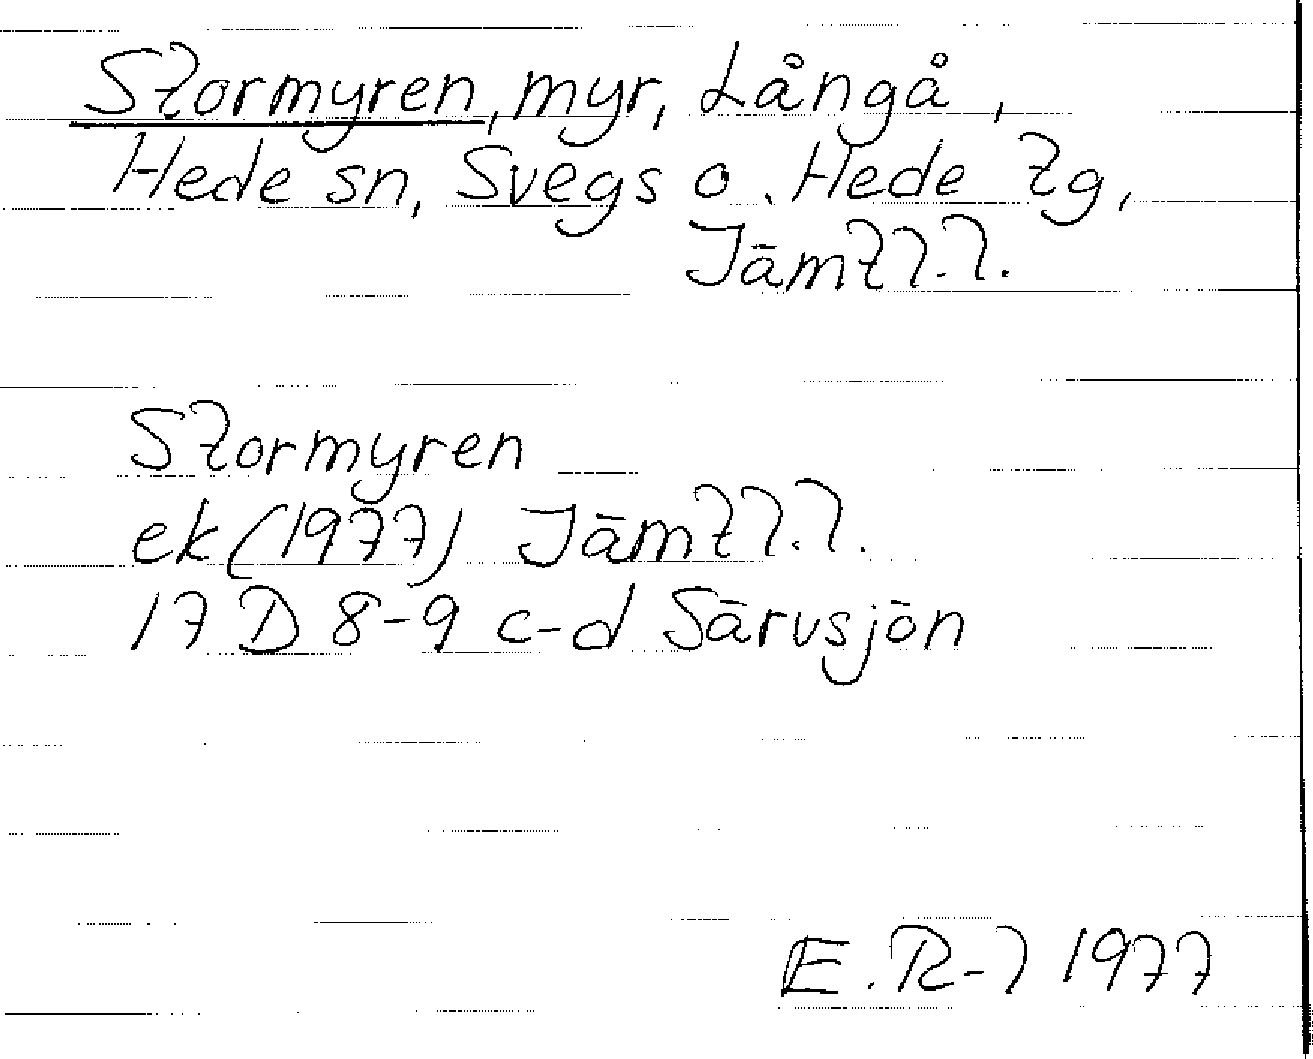 Stormyren, myr, Långå,
Hede sn, Svegs o. Hede tg,
Jämtl.l.
Stormyren
ek (1977) Jämtl.l.
17 D 8-9 c-d Särvsjön
E.R-l 1977